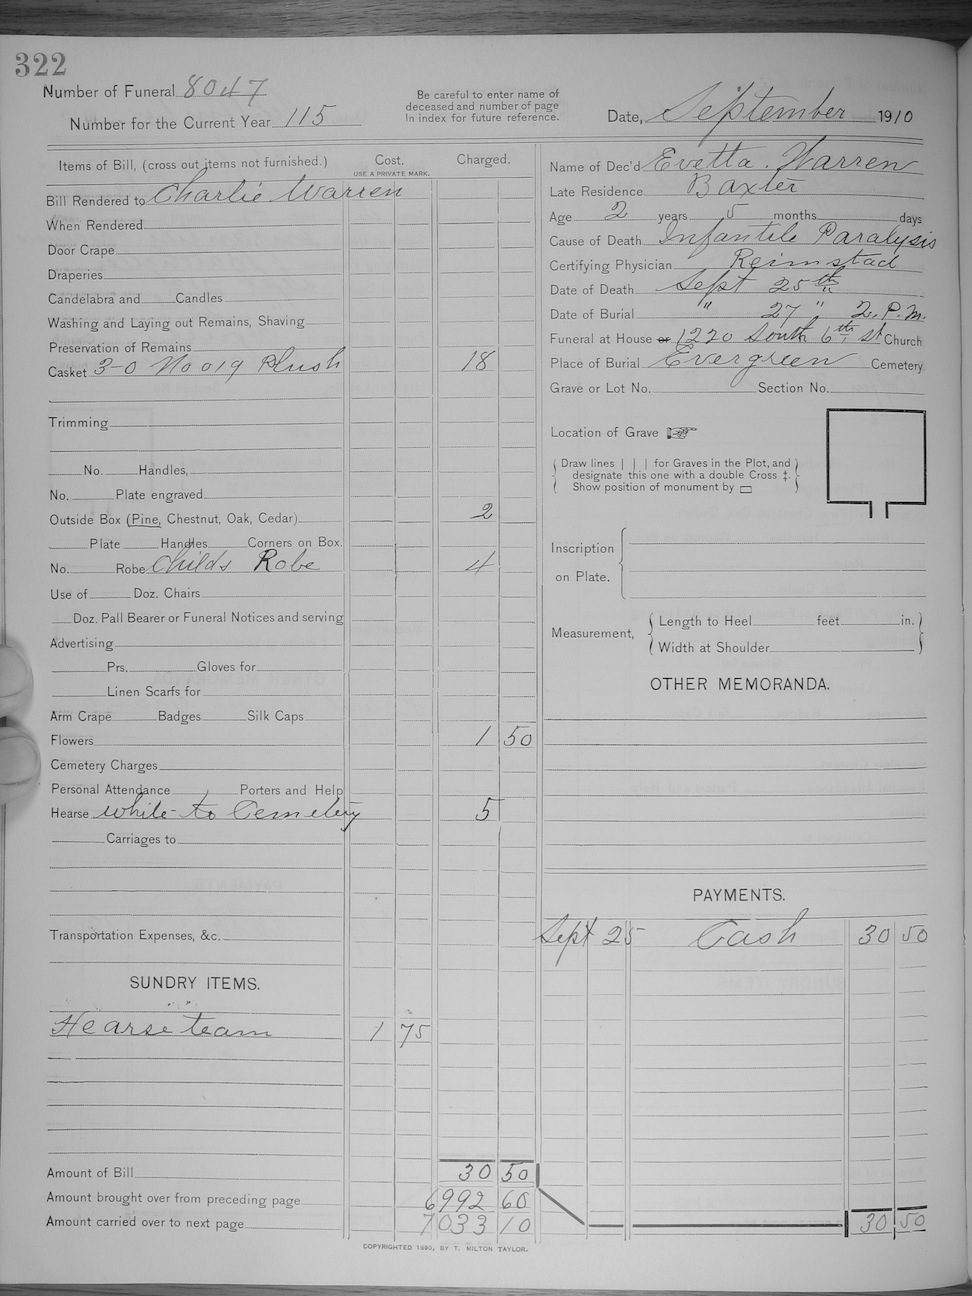 322
Number of Funeral 8047
Number for the Current Year 115
Be careful to enter name of
deceased and number of page
in index for future reference.
Date, September 1910
Items of Bill, (cross out items not furnished.)
Cost.
USE A PRIVATE MARK.
Charged.
Bill Rendered to Charlie Warren
When Rendered
Door Crape
Draperies
Candelabra and Candles
Washing and Laying out Remains, Shaving
Preservation of Remains
Casket 3-0 No 019 Plush 18
Trimming
No. Handles,
No. Plate engraved
Outside Box (Pine, Chestnut, Oak, Cedar) 2
Plate Handles Corners on Box.
No. Robe Childs Robe 4
Use of Doz. Chairs
Doz. Pall Bearer or Funeral Notices and serving
Advertising
Prs. Gloves for
Linen Scarfs for
Arm Crape Badges Silk Caps
Flowers 1 50
Cemetery Charges
Personal Attendance Porters and Help
Hearse white to Cemetery 5
Carriages to
Transportation Expenses, &c.
SUNDRY ITEMS.
Hearse team 1 75
Amount of Bill 30 50
Amount brought over from preceding page 6992 60
Amount carried over to next page 7033 10
Name of Dec'd Evetta Warren
Late Residence Baxter
Age 2 years 5 months days
Cause of Death Infantile Paralysis
Certifying Physician Reimstad
Date of Death Sept 25th
Date of Burial " 27 " 2. P.M.
Funeral at House or 1220 South 6th St Church
Place of Burial Evergreen Cemetery
Grave or Lot No. Section No.
Location of Grave
Draw lines | | | for Graves in the Plot, and
designate this one with a double Cross ‡.
Show position of monument by ▭
Inscription
on Plate.
Measurement,
Length to Heel feet in.
Width at Shoulder
OTHER MEMORANDA.
PAYMENTS.
Sept 25 Cash 30 50
30 50
COPYRIGHTED 1890, BY T. MILTON TAYLOR.